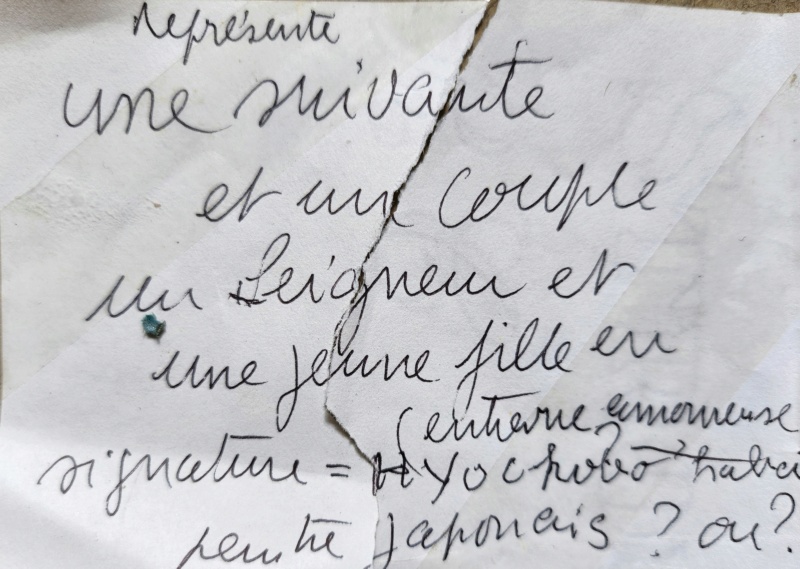 représente
une suivante
et un couple
un Seigneur et
une jeune fille en
(entrevue amoureuse
signature = Hyochobo ?
peintre japonais ? ou ?